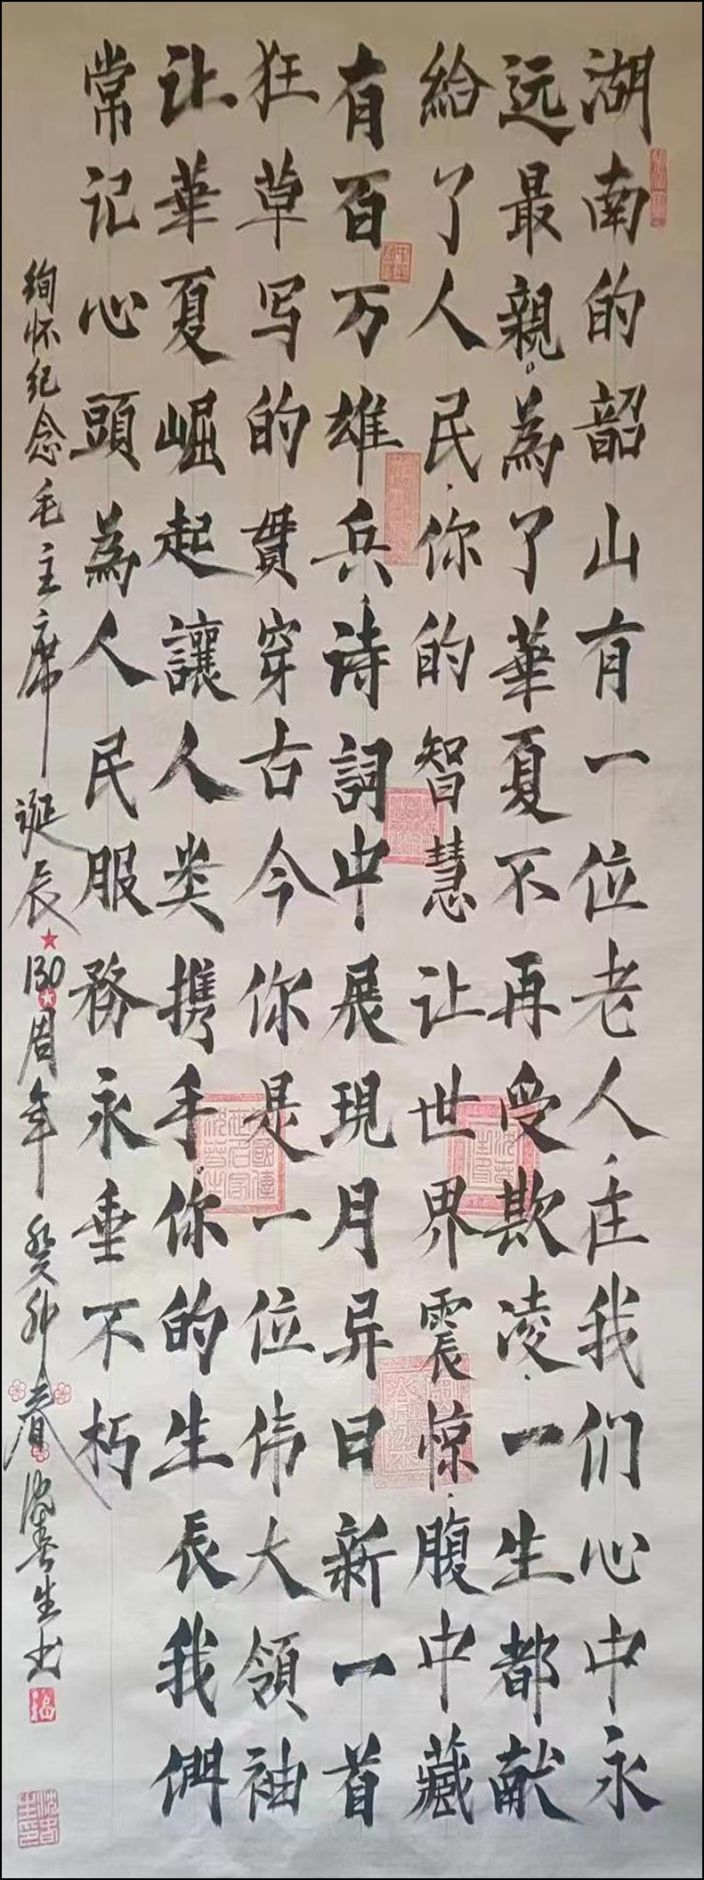 湖南的韶山有一位老人、在我们心中永
远最親。為了華夏不再受欺凌、一生都献
給了人民、你的智慧让世界震惊、腹中藏
有百万雄兵、诗詞中展現月异日新一首
狂草写的貫穿古今你是一位伟大領袖
让華夏崛起讓人类携手、你的生長我們
常记心頭為人民服務永垂不朽
緬怀纪念毛主席诞辰130周年癸卯春沈春生书